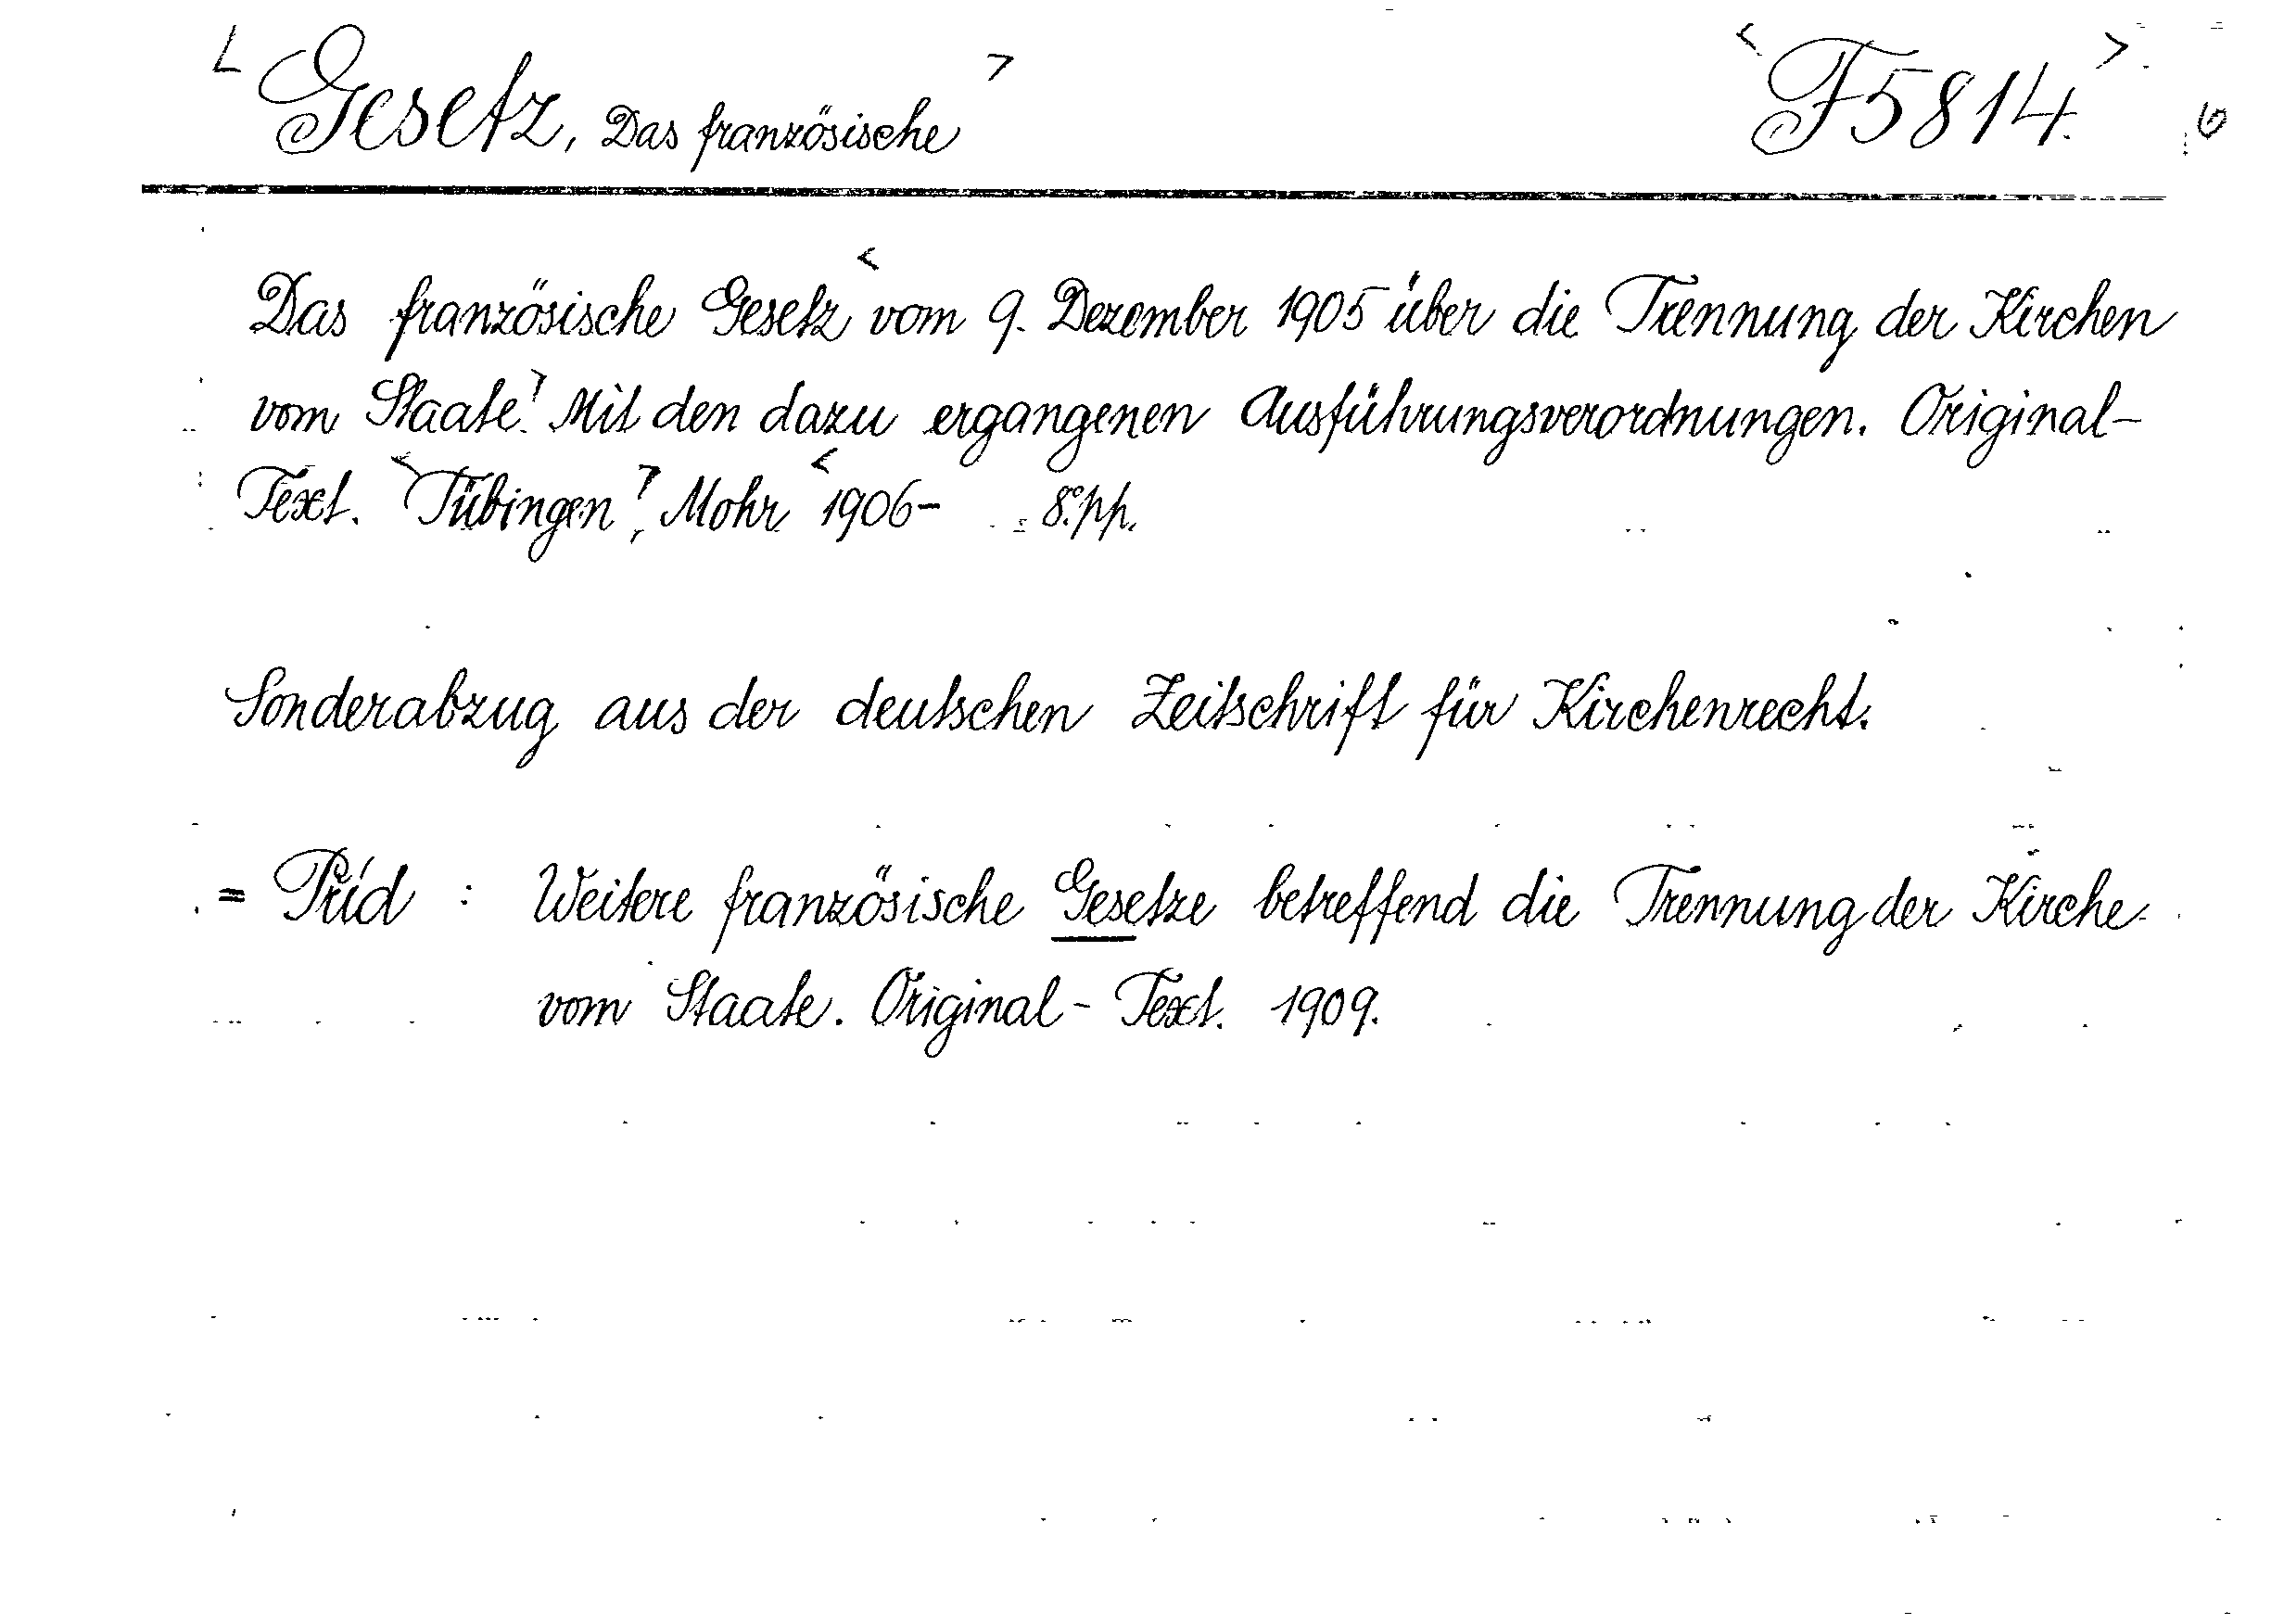 < Gesetz, Das französische > < F5814. >
Das französische Gesetz < vom 9. Dezember 1905 über die Trennung der Kirchen
vom Staate.> Mit den dazu ergangenen Ausführungsverordnungen. Original-
Text. < Tübingen >, Mohr < 1906- 8° pp.
Sonderabzug aus der deutschen Zeitschrift für Kirchenrecht.
= Príd : Weitere französische Gesetze betreffend die Trennung der Kirche
vom Staate. Original-Text. 1909.